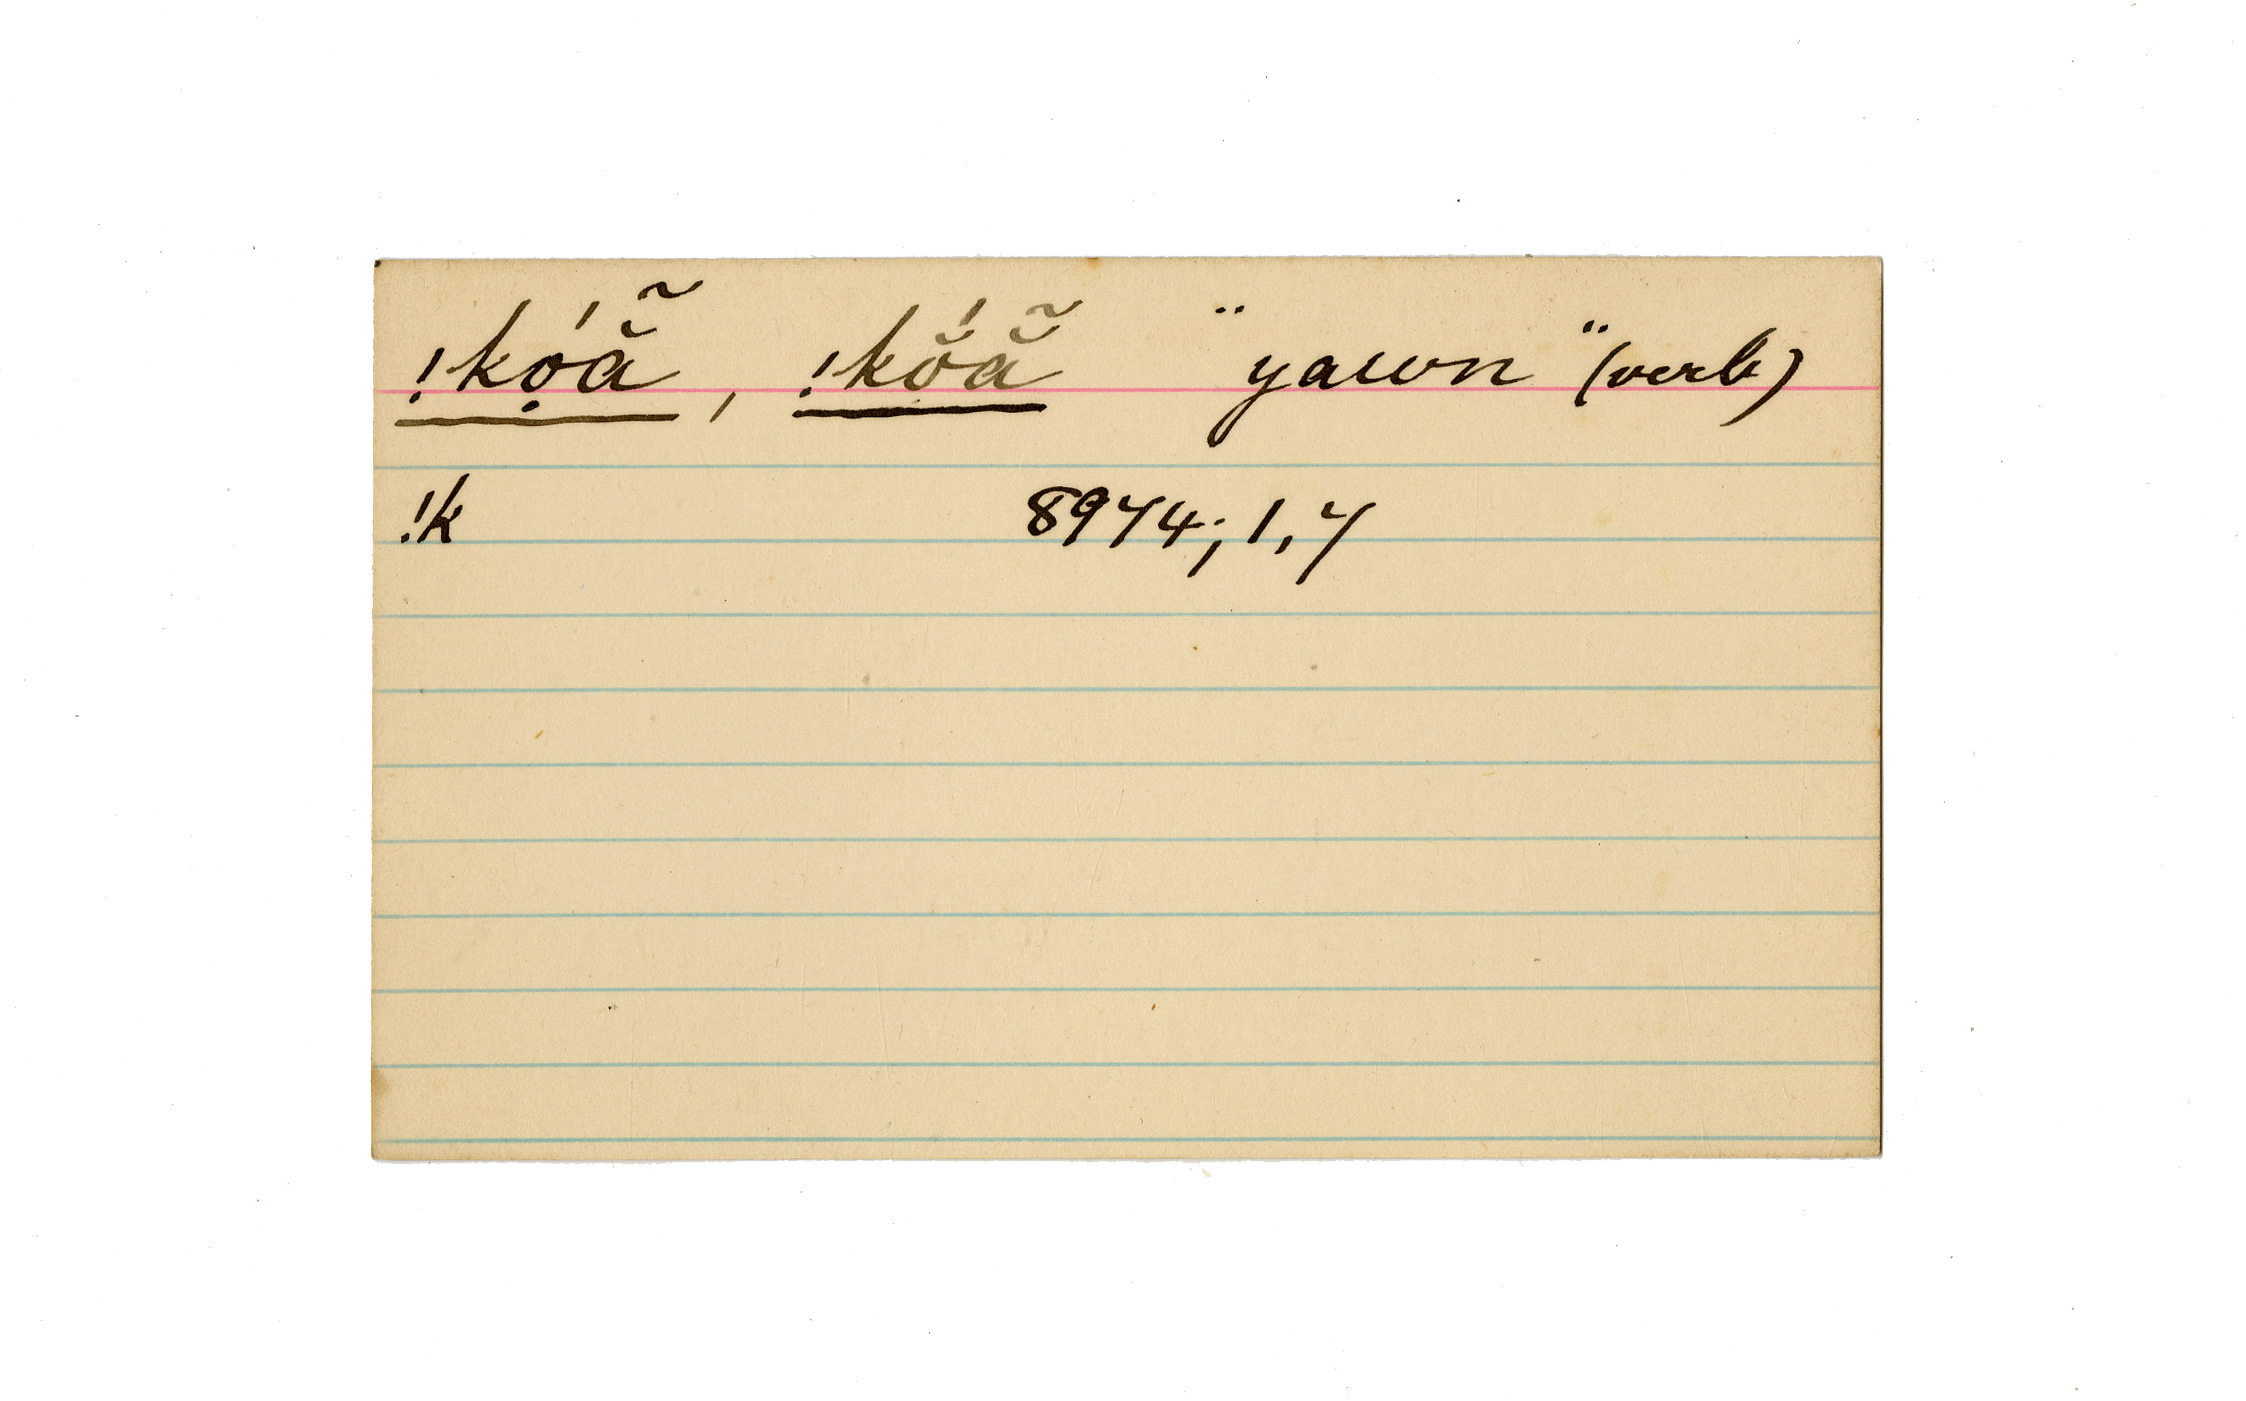 !kọ́ẵ, !kŏ́ẵ "yawn" (verb)
!k 8974; 1, 7